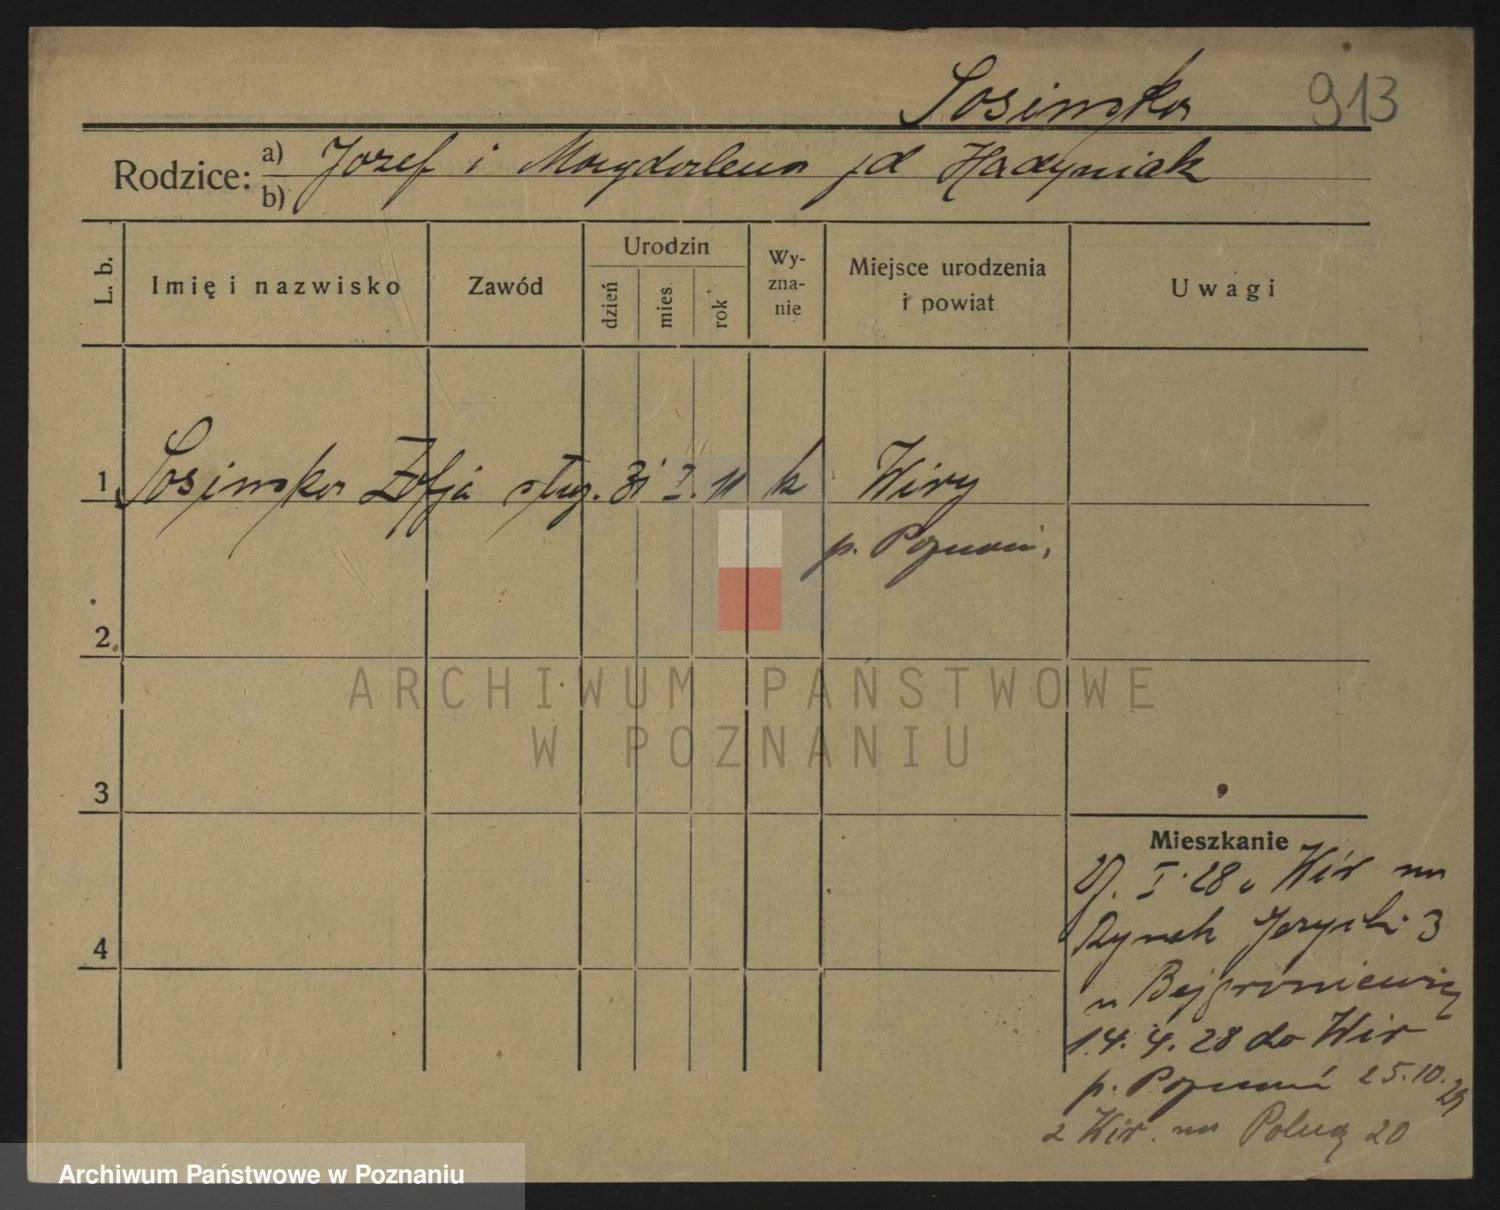 Sosimska 913
Rodzice: a) Józef i Magdalena jd Hadyniak
b)
L. b. Imię i nazwisko Zawód Urodzin dzień mies rok Wyznanie Miejsce urodzenia i powiat Uwagi
1 Sosimska Zofja służ. 31 I. 11 k Wiry
p. Poznań,
2
3
4
Mieszkanie
I. 28 Wir na
Rynek Jeżycki 3
u
14. 4. 28 do Wir
p. Poznań 25.10.
z Wir. na Polną 20
ARCHIWUM PAŃSTWOWE
W POZNANIU
Archiwum Państwowe w Poznaniu